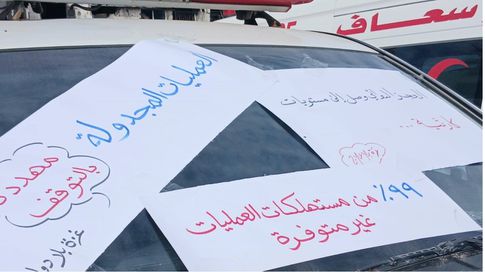 سعاف
العمليات المجدولة
مهددة
بالتوقف
غزة بلا دوا
وصل إلى مستويات
٩٩٪ من مستهلكات العمليات
غير متوفرة